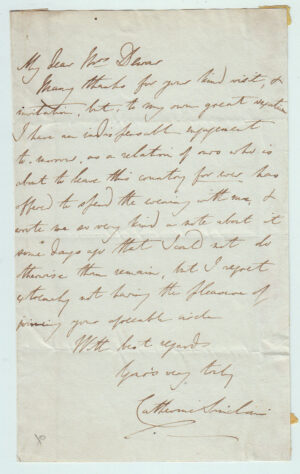 My Dear Mrs
Many thanks for your kind visit, &
invitation, but, to my own great
I have an indispensable engagement
to-morrow, as a relation of ours who is
about to leave this country for ever has
offered to spend the evening with me, &
wrote me so very kind a note about it
some days ago that I could not do
otherwise than remain, but I regret
extremely not having the pleasure of
joining your agreeable circle
With best regards
Yours very truly
Catherine Sinclair